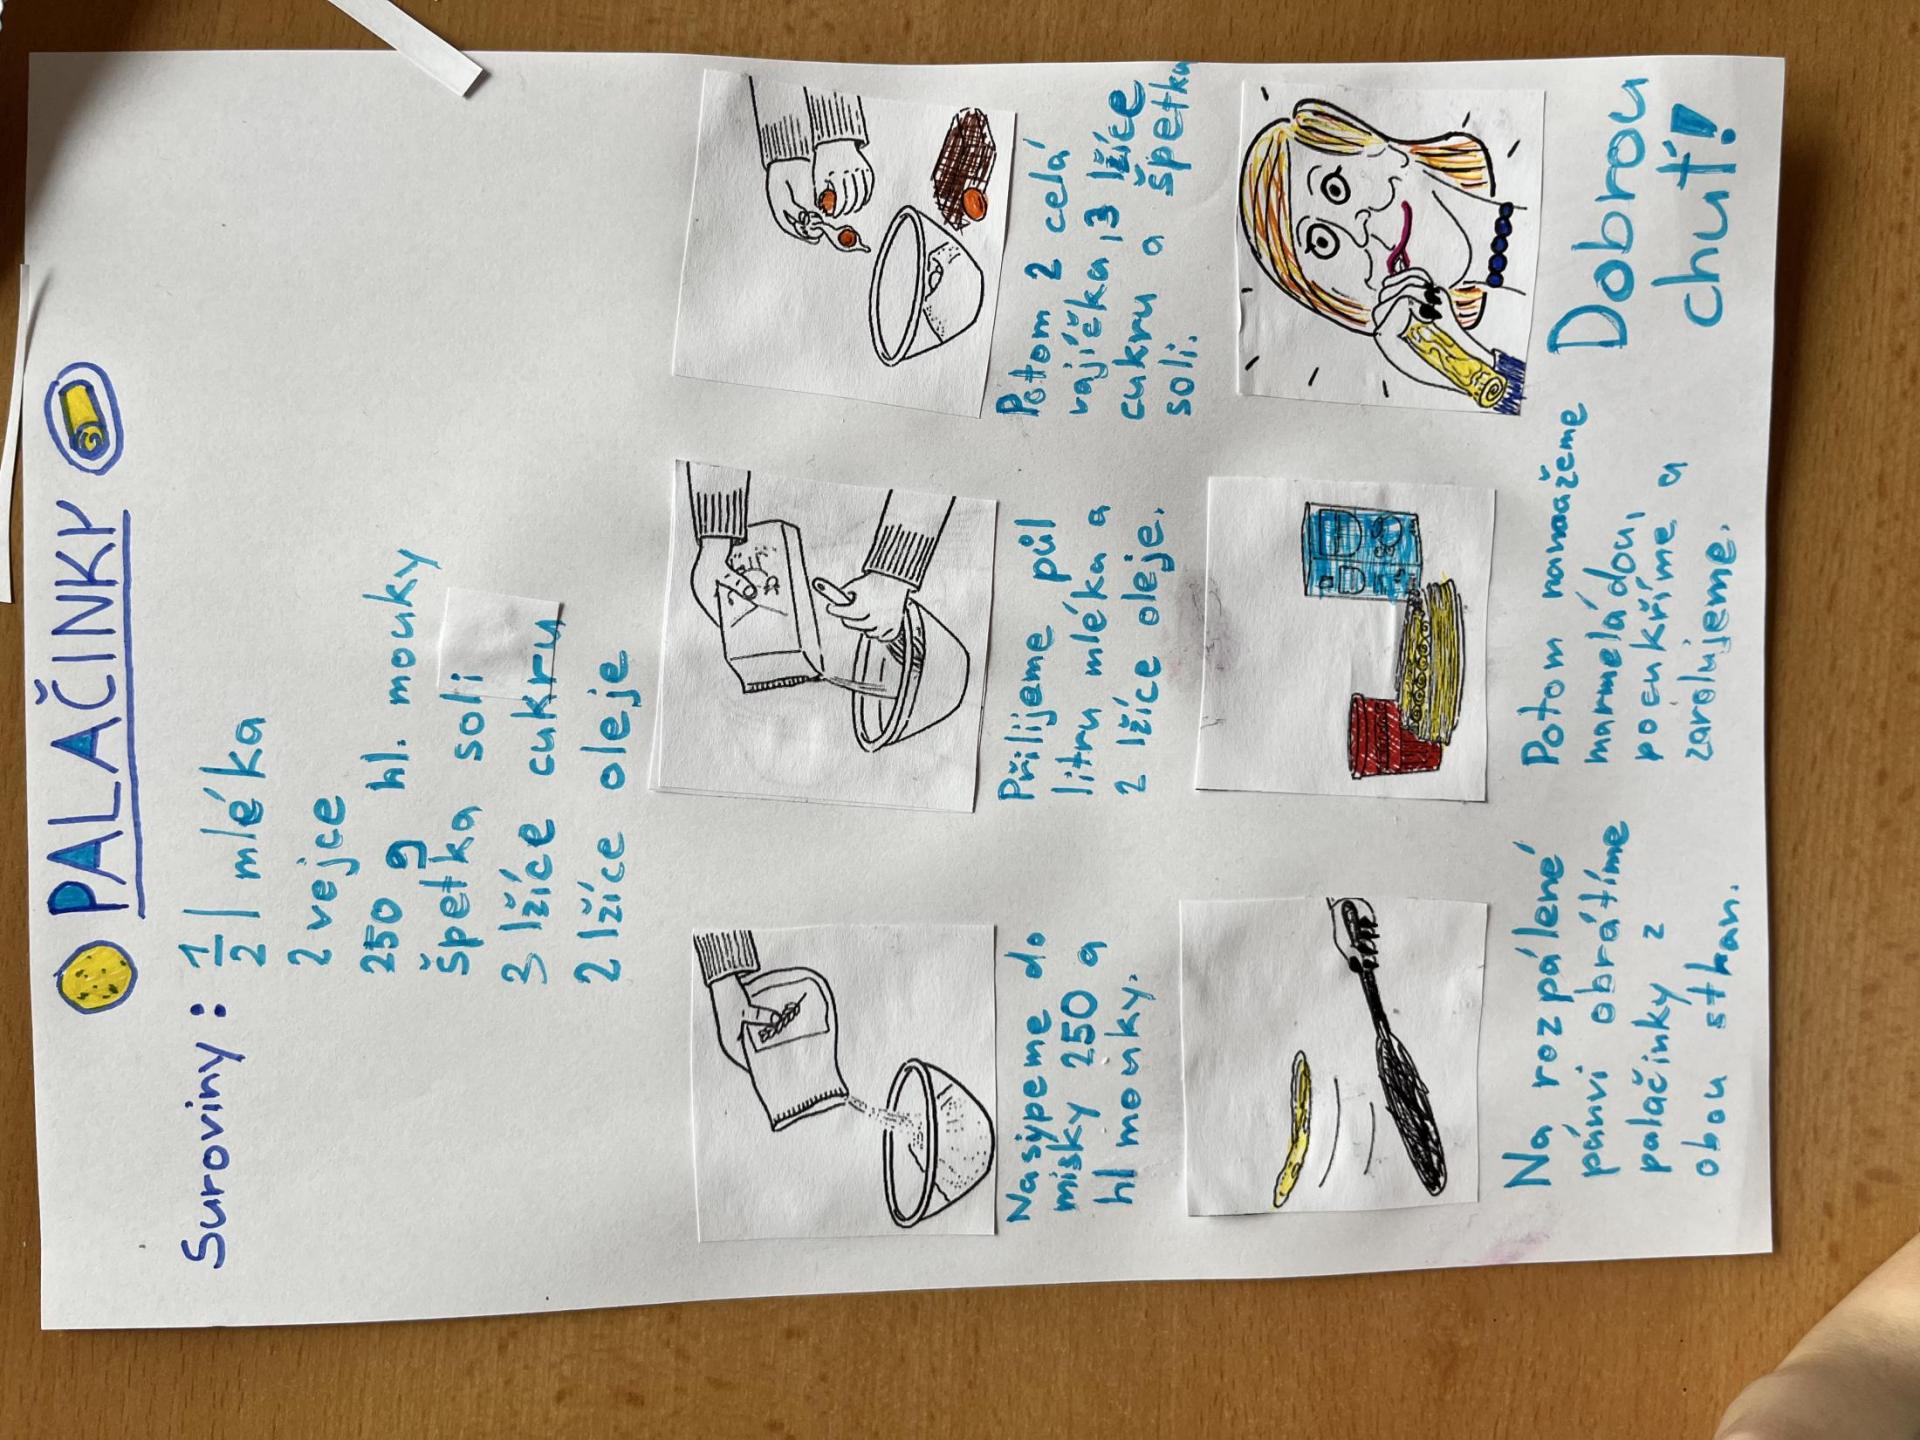 PALAČINKY
Suroviny:
1/2 l mléka
2 vejce
250 g hl. mouky
špetka soli
3 lžíce cukru
2 lžíce oleje
Nasypeme do
misky 250 a
hl mouky.
Přilijeme půl
litru mléka a
2 lžíce oleje.
Potom 2 celá
vajíčka, 3 lžíce
cukru a špetku
soli.
Na rozpálené
pánvi obrátíme
palačinky z
obou stran.
Potom namažeme
marmeládou,
pocukříme a
zarolujeme.
Dobrou
chuť!